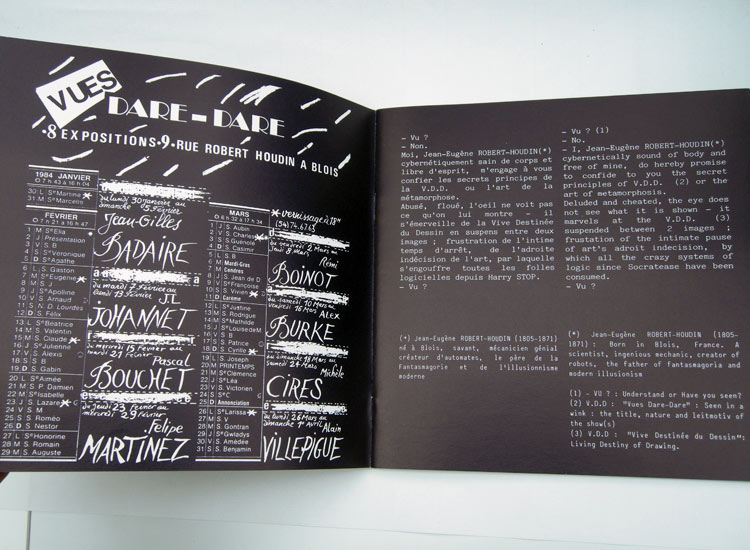 VUES
DARE-DARE
·8 EXPOSITIONS·9·RUE ROBERT HOUDIN A BLOIS
1984 JANVIER
O 7 h 43 à 16 h 04
30 L Sᵗᵉ Martine
31 M Sᵗᵉ Marcelle
FEVRIER
1 M Sᵗᵉ Ella
2 J Présentation
3 V S. B
4 S Sᵗᵉ Véronique
5 D Sᵗᵉ Agathe
6 L S. Gaston
7 M Sᵗᵉ Eugénie
8 M S. J
9 J Sᵗᵉ Apolline
10 V S. Arnaud
11 S N. D. Lourdes
12 D S. Félix
13 L Sᵗᵉ Béatrice
14 M S. Valentin
15 M S. Claude
16 J Sᵗᵉ Julienne
17 V S. Alexis
18 S S. B
19 D S. Gabin
20 L Sᵗᵉ Aimée
21 M S. P. Damien
22 M Sᵗᵉ Isabelle
23 J S. Lazare
24 V S. M
25 S S. Roméo
26 D S. Nestor
27 L Sᵗᵉ Honorine
28 M S. Romain
29 M S. Auguste
du lundi 30 janvier au
dimanche 05 Février
Jean-Gilles
BADAIRE
du mardi 7 Février au
lundi 13 Février
J.L
JOHANNET
du mercredi 15 Février au
mardi 21 Février
Pascal
BOUCHET
du jeudi 23 Février au
mercredi 29 Février
Felipe
MARTINEZ
MARS
O 6 h 32 à 17 h 34
1 J S. Aubin
2 V S. Charles
3 S S. Guénolé
5 L S. B
6 M Mardi-Gras
7 M Cendres
8 J S. Jean de D
9 V Sᵗᵉ Françoise
10 S S. Vivien
11 D Carême
12 L Sᵗᵉ Justine
13 M S. Rodrigue
14 M Sᵗᵉ Mathilde
15 J Sᵗᵉ Louise de M
16 V S. B
17 S S. Patrice
18 D S. Cyrille
19 L S. Joseph
20 M PRINTEMPS
21 M S. Clémence
22 J Sᵗᵉ Léa
23 V S. Victorien
24 S Sᵗᵉ C
25 D Annonciation
26 L Sᵗᵉ Larissa
27 M S. H
28 M S. Gontran
29 J Sᵗᵉ Gwladys
30 V S. Amédée
31 S S. Benjamin
*vernissage à 18ʰ
(54)74.67.63
du vendredi 2 Mars au
Jeudi 8 Mars
Rémi
BOINOT
du samedi 10 Mars au
vendredi 16 Mars
ALEX
BURKE
du dimanche 18 Mars au
samedi 24 Mars
Michèle
CIRES
du lundi 26 Mars au
dimanche 1ᵉʳ Avril
Alain
VILLEPIGUE
- Vu ?
- Non.
Moi, Jean-Eugène ROBERT-HOUDIN(*)
cybernétiquement sain de corps et
libre d'esprit, m'engage à vous
confier les secrets principes de
la V.D.D. ou l'art de la
métamorphose.
Abusé, floué, l'oeil ne voit pas
ce qu'on lui montre - il
s'émerveille de la Vive Destinée
du Dessin en suspens entre deux
images ; frustration de l'intime
temps d'arrêt, de l'adroite
indécision de l'art, par laquelle
s'engouffre toutes les folles
logicielles depuis Harry STOP.
- Vu ?
(*) Jean-Eugène ROBERT-HOUDIN (1805-1871)
né à Blois, savant, mécanicien génial
créateur d'automates, le père de la
Fantasmagorie et de l'illusionnisme
moderne
- Vu ? (1)
- No.
- I, Jean-Eugène ROBERT-HOUDIN(*)
cybernetically sound of body and
free of mine, do hereby promise
to confide to you the secret
principles of V.D.D. (2) or the
art of metamorphosis.
Deluded and cheated, the eye does
not see what it is shown - it
marvels at the V.D.D. (3)
suspended between 2 images ;
frustation of the intimate pause
of art's adroit indecision, by
which all the crazy systems of
logic since Socratease have been
consumed.
- Vu ?
(*) Jean-Eugène ROBERT-HOUDIN (1805-
1871) : Born in Blois, France. A
scientist, ingenious mechanic, creator of
robots, the father of Fantasmagoria and
modern illusionism
(1) - VU ? : Understand or Have you seen?
(2) V.D.D : "Vues Dare-Dare" : Seen in a
wink : the title, nature and leitmotiv of
the show(s)
(3) V.D.D : "Vive Destinée du Dessin":
Living Destiny of Drawing.